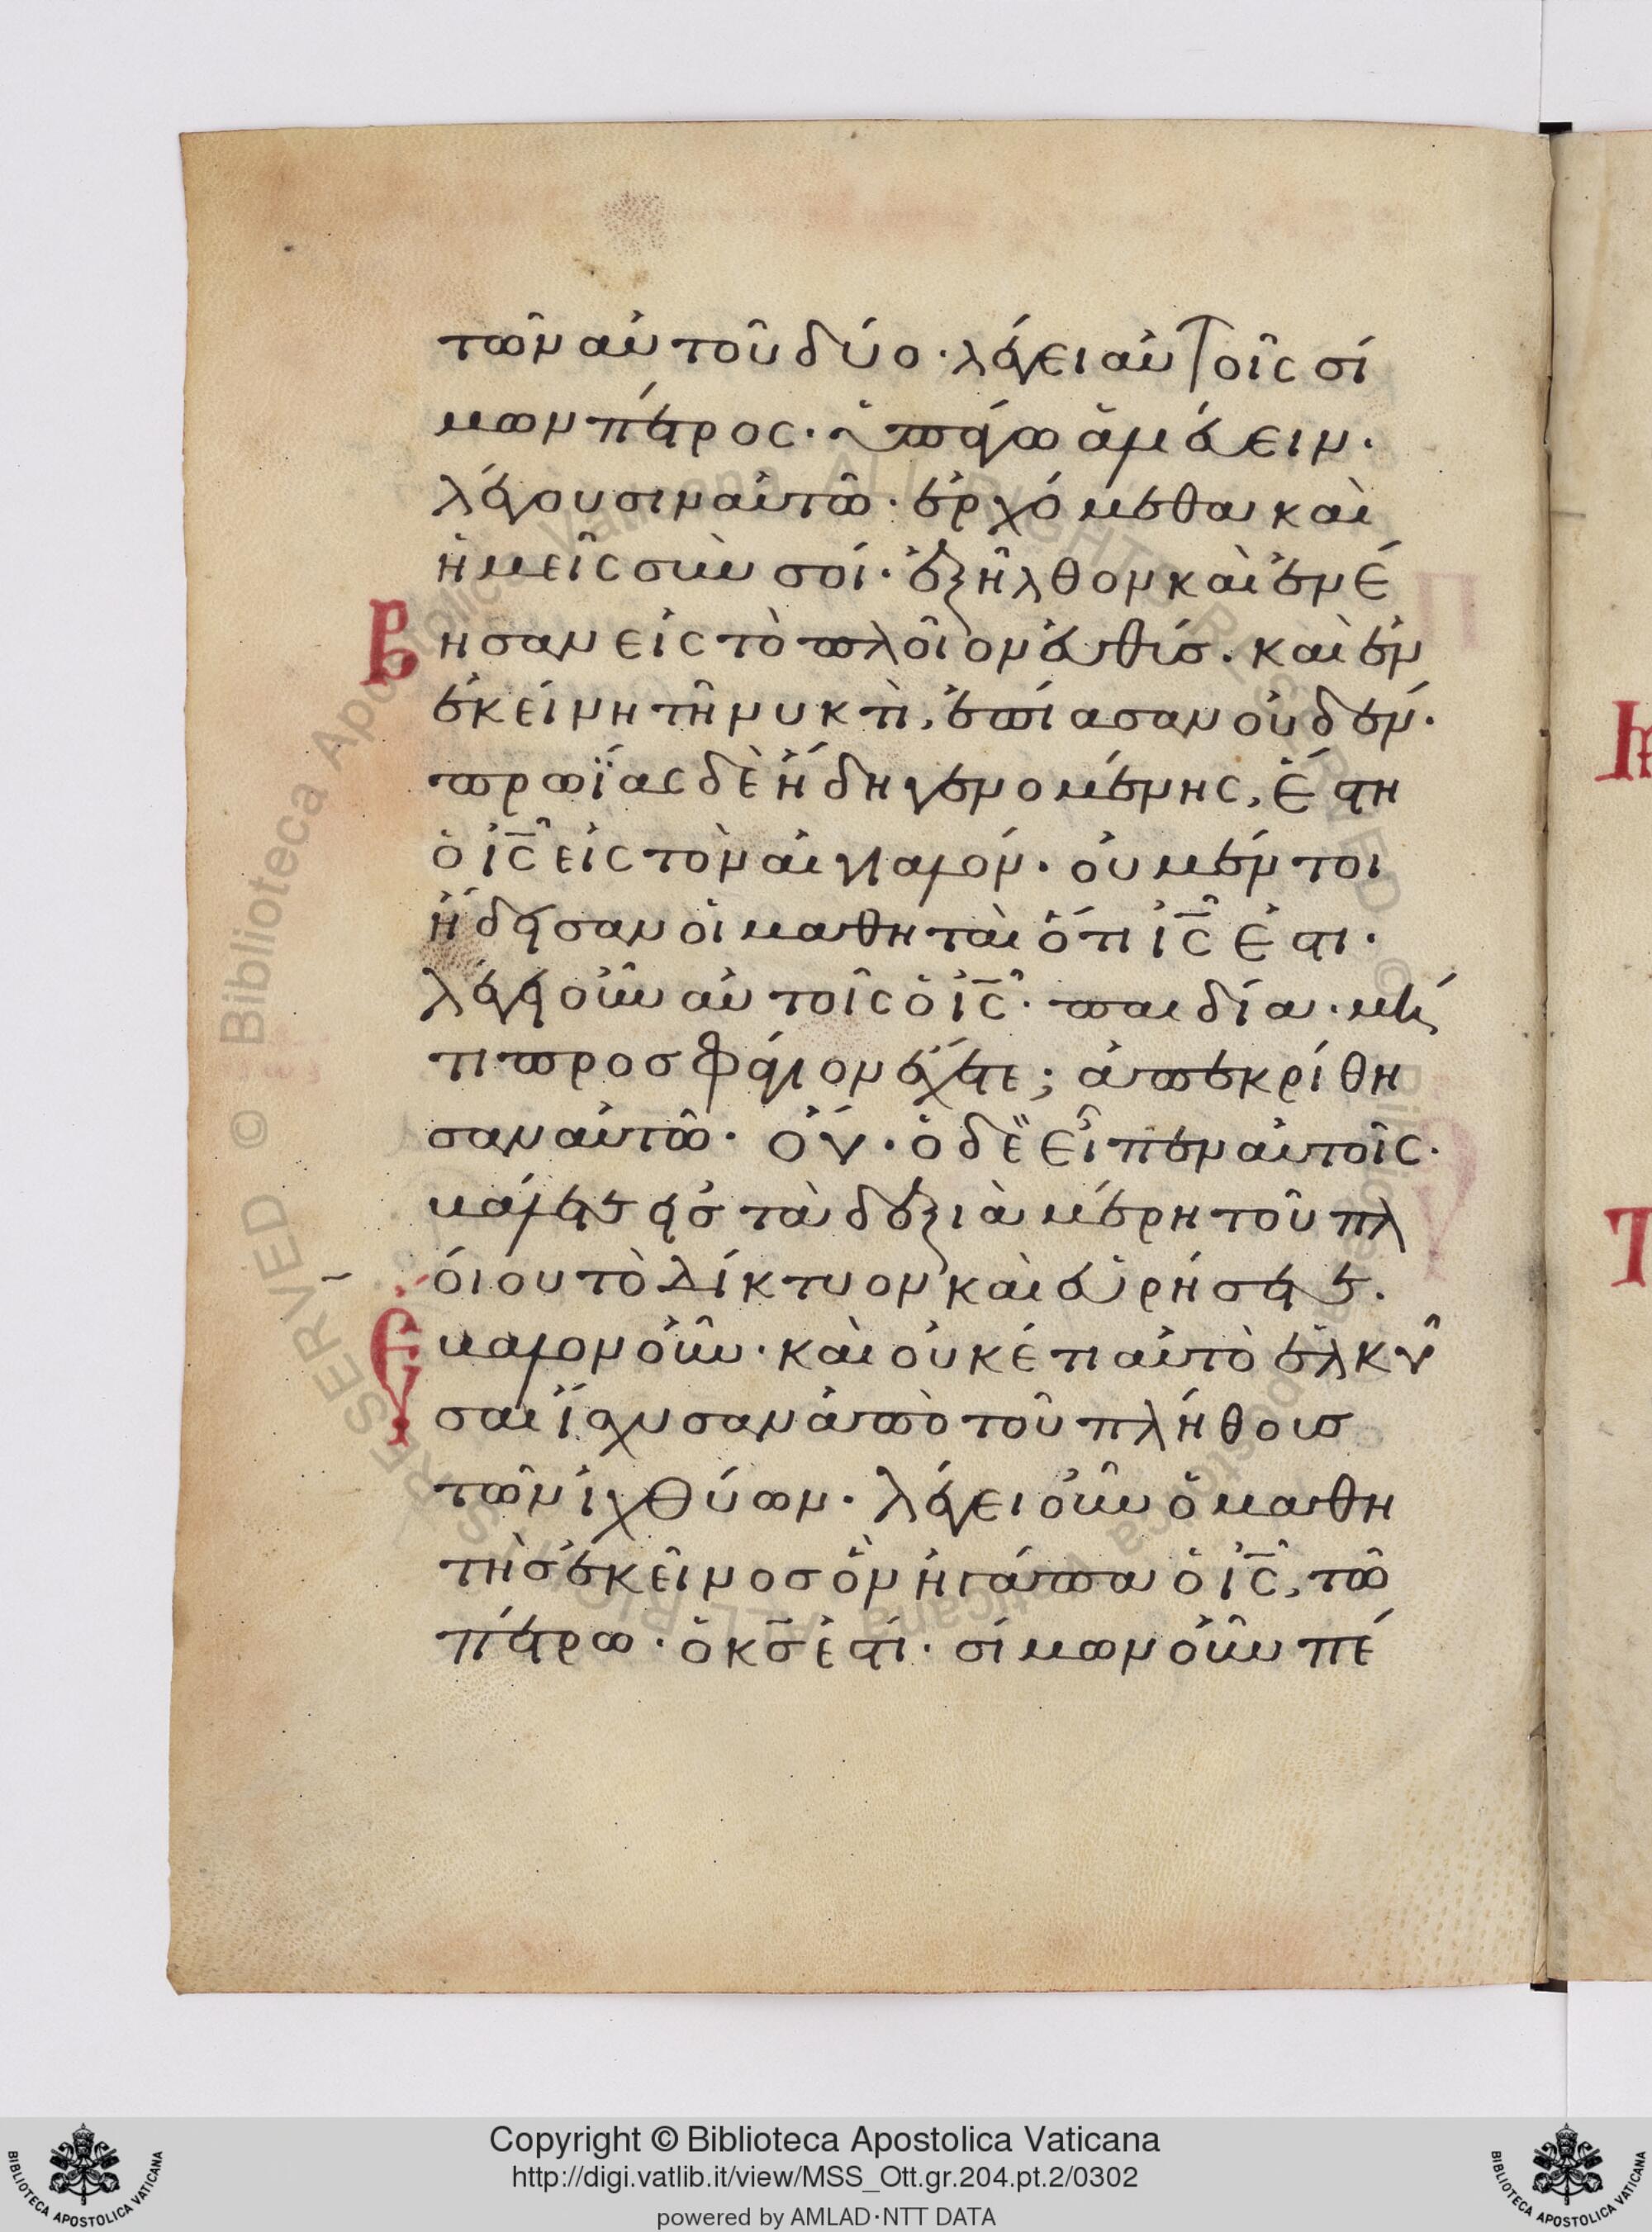 τῶν αὐτοῦ δύο· λέγει αὐτοῖς σί
μων πέτρος· ὑπάγω ἁλιέυειν·
λέγουσιν αὐτῶ· ἐρχόμεθα καὶ
ἡμεῖς σὺν σοί· ἐξῆλθον καὶ ἐνέ
βησαν εἰς τὸ πλοῖον ἐυθύσ· καὶ ἐν
ἐκείνη τῆ νυκτὶ, ἐπίασαν οὐδέν·
πρωΐας δὲ ἤδη γενομένης, ἔστη
ὁ ἰ̅ς̅ εἰς τὸν αἰγιαλόν· οὐ μέντοι
ἤδεισαν οἱ μαθηταὶ ὅτι ἰ̅ς̅ ἐστι·
λέγει οὖν αὐτοῖς ὁ ἰ̅ς̅· παιδία· μή
τι προσφάγιον ἔχετε; ἀπεκρίθη
σαν αὐτῶ· οὔ· ὁ δὲ εἶπεν αὐτοῖς·
βάλετε εἰσ τὰ δεξιὰ μέρη τοῦ πλ
όιου τὸ δίκτυον καὶ ἑυρήσετε·
Ἔβαλον οὖν· καὶ οὐκέτι αὐτὸ ἑλκῦ
σαι ἴσχυσαν ἀπὸ τοῦ πλήθουσ
τῶν ἰχθύων· λέγει οὖν ὁ μαθη
τὴσ ἐκεῖνοσ ὃν ἠγάπα ὁ ἰ̅ς̅, τῶ
πέτρω· ὁ κ̅σ̅ ἐστί· σίμων οὖν πέ
Copyright © Biblioteca Apostolica Vaticana
http://digi.vatlib.it/view/MSS_Ott.gr.204.pt.2/0302
powered by AMLAD·NTT DATA